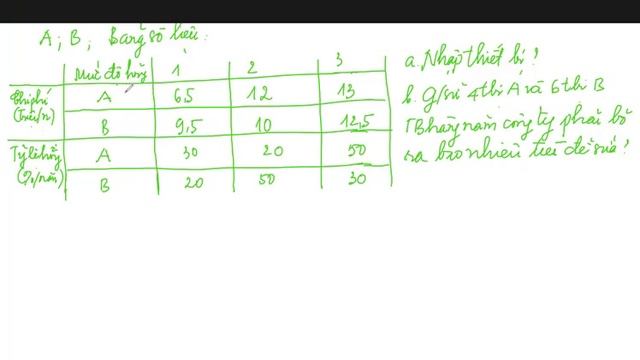 A; B; Bảng số liệu:
Mức độ hỏng 1 2 3
Chi phí (triệu/n) A 6,5 12 13
B 9,5 10 12,5
Tỷ lệ hỏng (%/năm) A 30 20 50
B 20 50 30
a. Nhập thiết bị?
b. G/sử 4 tbi A và 6 tbi B
TB hàng năm công ty phải bỏ
ra bao nhiêu tiền để sửa?